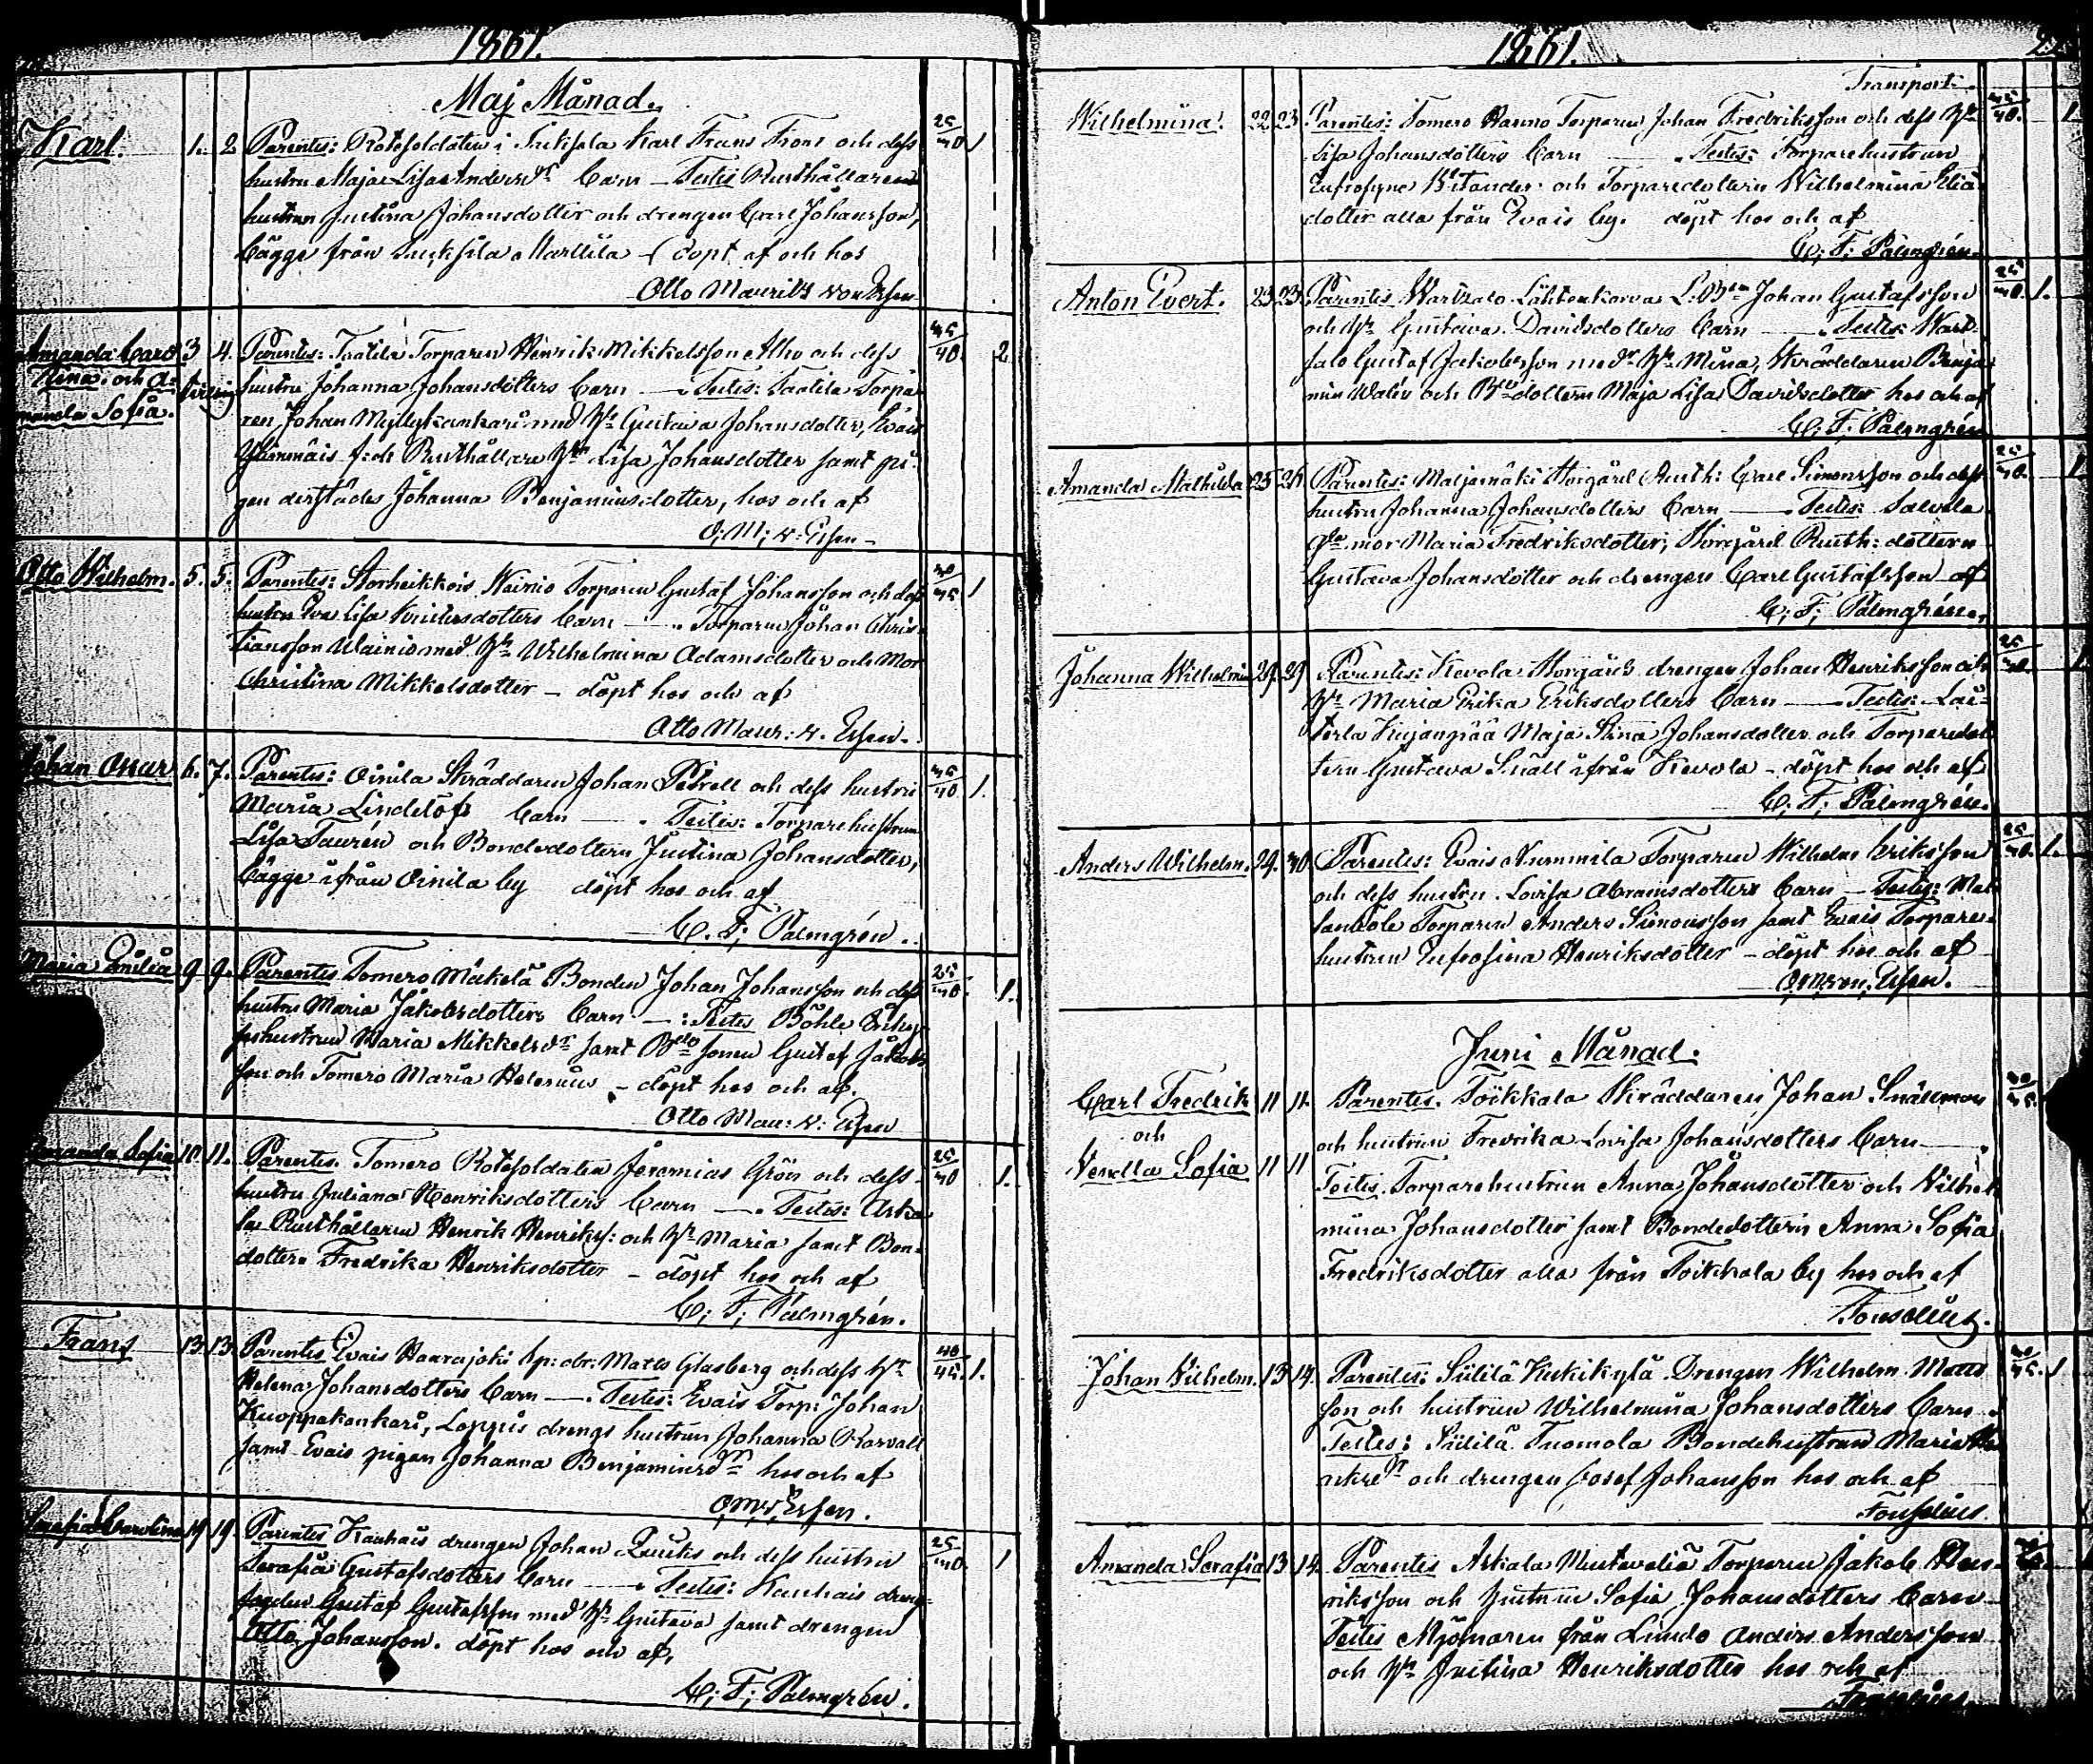 1861.
Maj Månad.
Karl. 1. 2 Parentes: Rotesoldaten i Karl Frans Front och dess 25/30 1
hustru Maja Lisa Anders dr barn — Testis Rusthållaren
hustrun Justina Johansdotter och drengen Carl Johansson,
bägge från Marttila – döpt af och hos
Otto Maurits von Essen
Amanda Caro 3 4. Parentes: Taatila Torparen Henrik Mikkelsson Alho och dess 35/40. 2.
lina och A= tvilling hustru Johanna Johansdotters barn — Testis: Taatila Torpa
manda Sofia. ren Johan Myllykankare med H. Gustava Johansdotter, Evais
Rusthållare Hn Lisa Johansdotter samt pi-
gan derstädes Johanna Benjaminsdotter, hos och af
O; M; v: Essen –
Otto Wilhelm. 5. 5. Parentes: Storheikkois Wainio Torparen Gustaf Johansson och dess 30/35 1
hustru Eva Lisa barn — Torparen Johan Chris
tiansson Wainio med Hu Wilhelmina Adamsdotter och Mor
Christina Mikkelsdotter – döpt hos och af
Otto Maur: v. Essen.
Johan Oscar 6. 7. Parentes: Oinila Skräddaren Johan Petrell och dess hustru 35/40 1.
Maria Lindelöfs barn — . Testis: Torparehustrun
Lisa Taurén och Bondedottern Justina Johansdotter,
bägge ifrån Oinila by döpt hos och af
C. F; Palmgrén.
Maria Emilia 9 9. Parentes Tomero Mäkelä Bonden Johan Johansson och dess 25/30. 1.
hustru Maria Jakobsdotters barn — : Testes Böhle
hustrun Maria Mikkelsdr samt sonen Gustaf Jakobs
son och Tomero Maria Helenius – döpt hos och af.
Otto Mau: v: Essen
Amanda Sofia 10. 11. Parentes. Tomero Rotesoldaten Jeremias Grön och dess 25/30 1.
hustru Juliana Henriksdotters barn — . Testes: Aska
la Rusthållaren Henrik Henrikss: och Hu Maria samt Bon-
dottern Fredrika Henriksdotter – döpt hos och af
C; F; Palmgrén.
Frans 13. 13. Parentes Evais Haarajoki Matts Glasberg och dess Hu 40/45. 1.
Helena Johansdotters barn — . Testes: Evais Torp: Johan
Kuoppakankare, Loppis drengs hustrun Johanna Karvall
samt Evais pigan Johanna Benjaminsdr hos och af
O,M,v,Essen.
Serafia Carolina 19 19. Parentes Kauhais drengen Johan och dess hustru 25/30. 1
Serafia Gustafsdotters barn — Testes: Kauhais dreng-
Gustaf Gustafsson med Hu Gustava samt drengen
Otto Johansson. döpt hos och af,
C; F; Palmgrén.
1861. 22
Transport:
Wilhelmina. 22 23 Parentes: Tomero Hanno Torparen Johan Fredriksson och dess Hu 35/40. 1
Lisa Johansdotters barn — . Testes: Torparehustrun
Eufrosyne och Torparedottern Wilhelmina Eliä
dotter alla från Evais by. döpt hos och af
C; F; Palmgrén.
Anton Evert. 23 23. Parentes. Wartsalo Johan Gustafsson 25/30. 1.
och Hu Gustava Davidsdotters barn — . Testes: Wart
salo Gustaf Jakobsson med Hu Mina, Skräddaren Benja
min Walén och dottern Maja Lisa Davidsdotter hos och af
C; F; Palmgrén
Amanda Mathilda 25 26 Parentes: Maljamäki Horgård Rusth: Carl Simonsson och dess 25/30. 1
hustru Johanna Johansdotters barn — . Testes: Salvela
mor Maria Fredriksdotter, Horgård Rusth: dottern
Gustava Johansdotter och drengen Carl Gustafsson af
C; F; Palmgrén.
Johanna Wilhelmin 29. 29 Parentes: Kevola Horgård drengen Johan Henriksson och 25/30. 1
Hu Maria Erika Eriksdotters barn — Testes: Lau-
terla Kujanpää Maja Stina Johansdotter och Torparedot
tern Gustava Snäll ifrån Kevola – döpt hos och af
C; F; Palmgrén.
Anders Wilhelm. 29. 30. Parentes: Evais Nummila Torparen Wilhelm Eriksson 25/30. 1.
och dess hustru Lovisa Abramsdotters barn — Testes:
Torparen Anders Simonsson samt Evais Torpare-
hustrun Eufrosina Henriksdotter – döpt hos och af
O,M,von,Essen.
Juni Månad.
Carl Fredrik 11 11. Parentes. Töikkala Skräddaren Johan Snällman 30/35.
och och hustrun Fredrika Lovisa Johansdotters barn —
Vendla Sofia 11 11 Testes. Torparehustrun Anna Johansdotter och Wilhel
mina Johansdotter samt Bondedottern Anna Sofia
Fredriksdotter alla från Toikkala by hos och af
Fonselius.
Johan Wilhelm. 13 14. Parentes: Siililä Kukikylä Drengen Wilhelm Matts 30/35. 1
son och hustrun Wilhelmina Johansdotters barn.
Testes: Siililä Tuomola Bondehustrun Maria
och drengen Josef Johansson hos och af
Fonselius.
Amanda Serafia 13. 14. Parentes Askala Mustaoja Torparen Jakob Hen-
riksson och hustrun Sofia Johansdotters barn
Testes Mjölnaren från Lundo Anders Andersson
och Hu Justina Henriksdotter hos och af
Fonselius